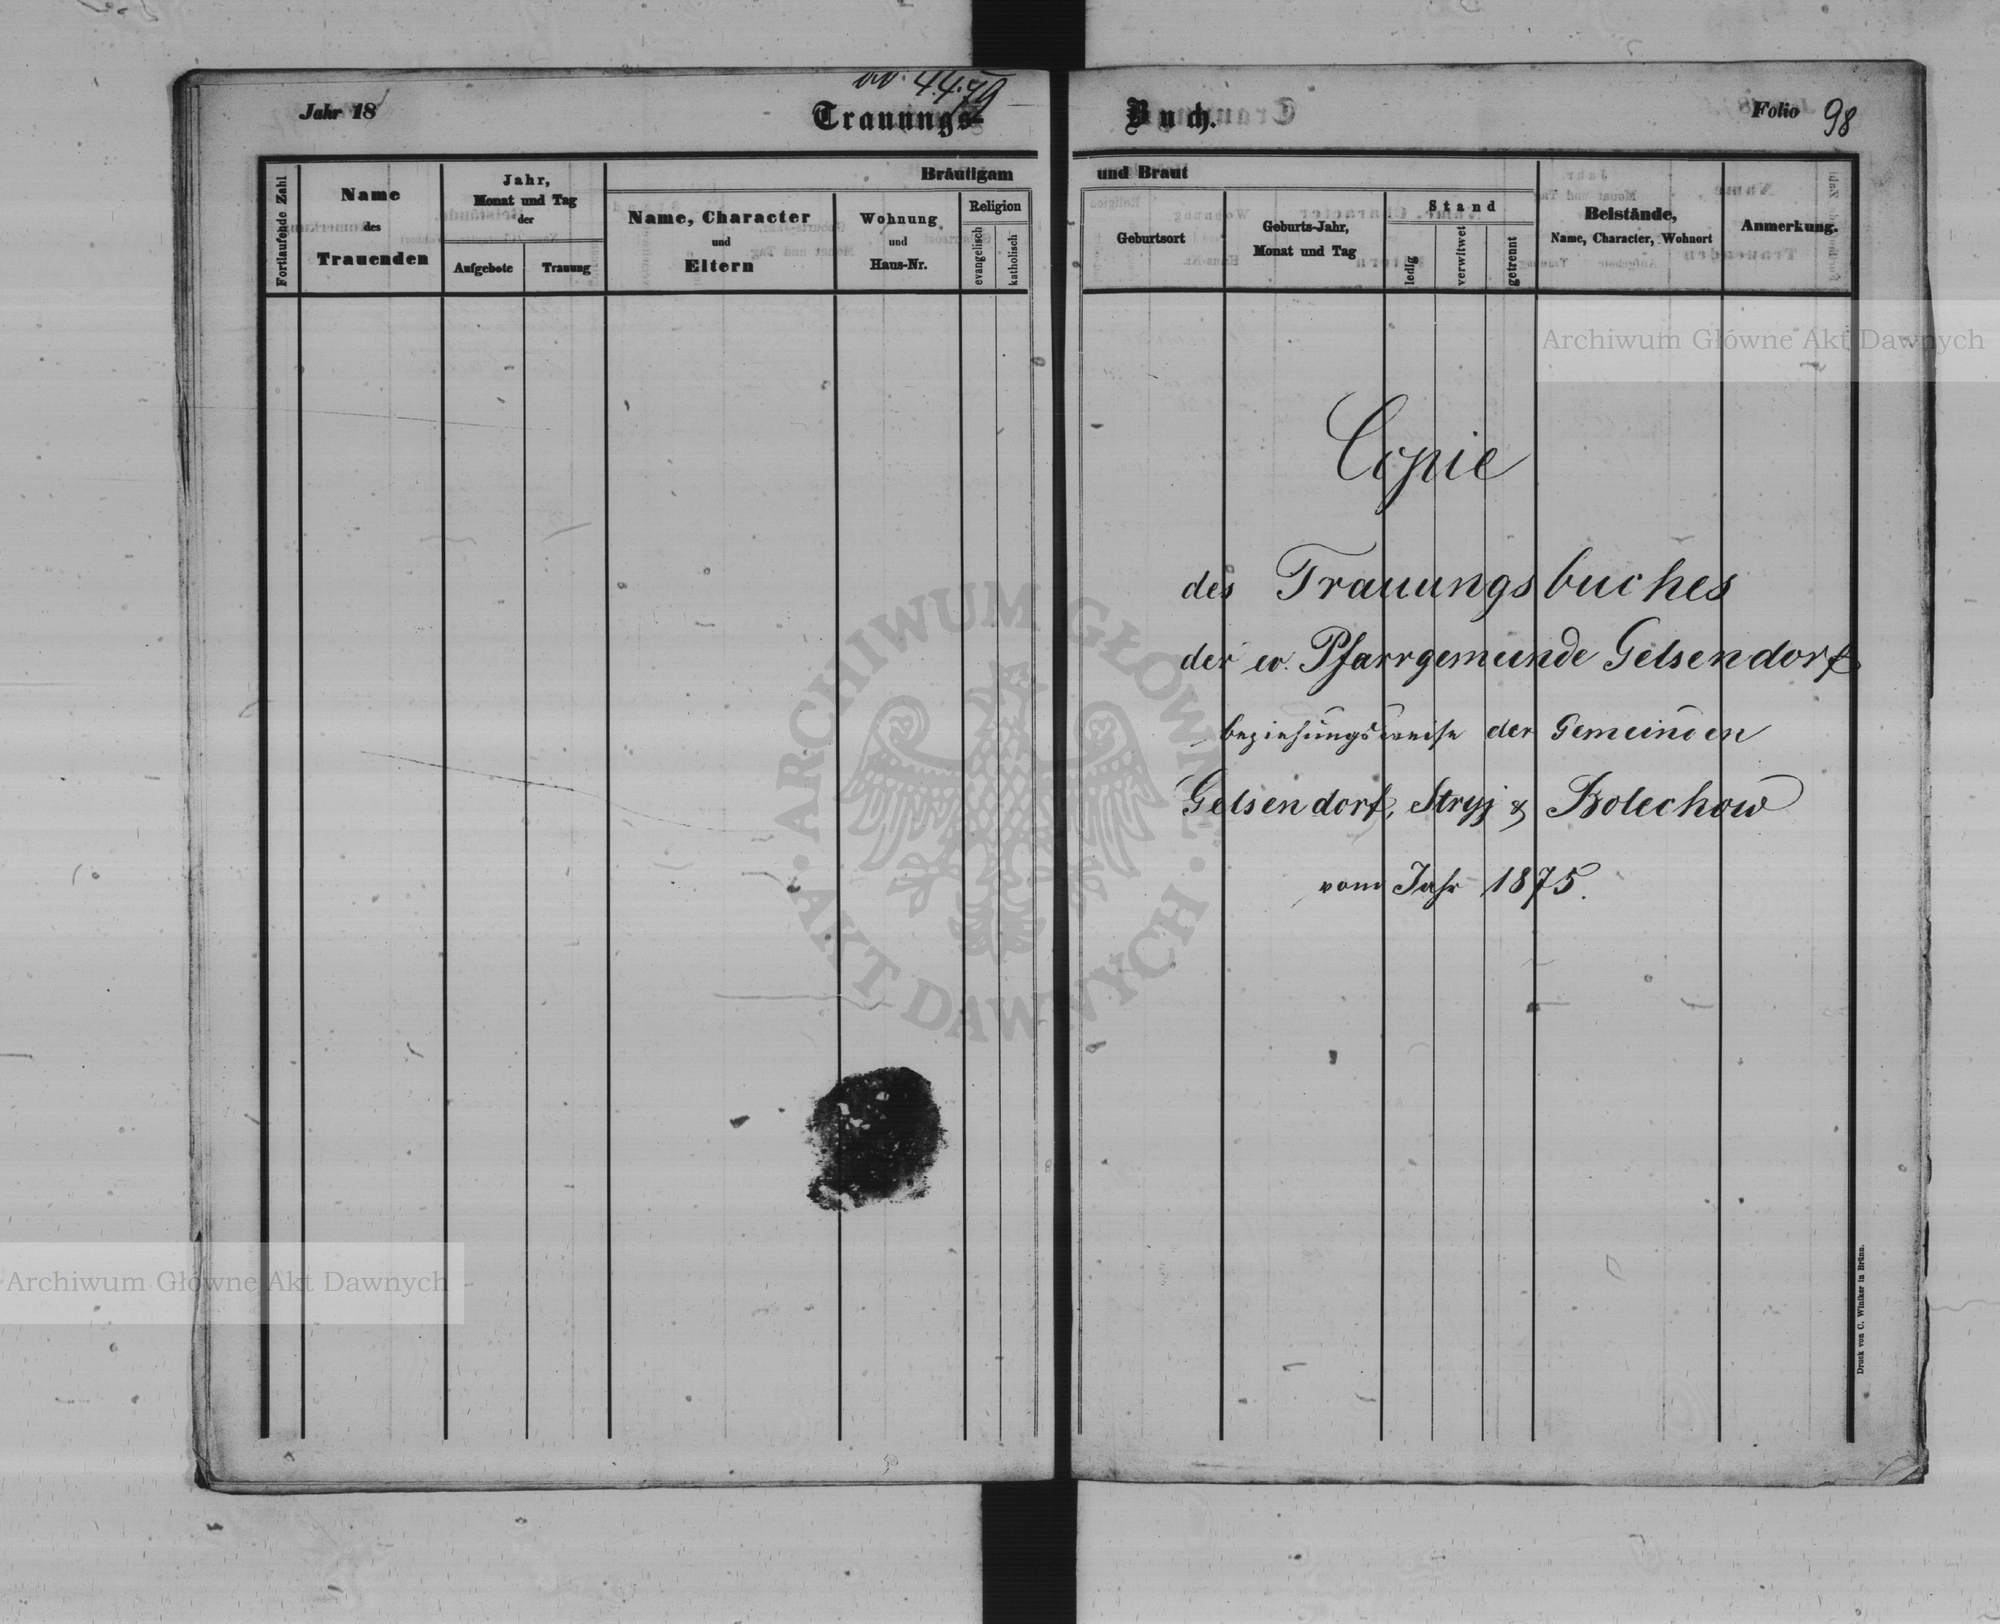 Jahr 18
Trauungs-
Buch.
Folio 98
Fortlaufende Zahl
Name
des
Trauenden
Jahr,
Monat und Tag
der
Aufgebote
Trauung
Bräutigam
Name, Character
und
Eltern
Wohnung
und
Haus-Nr.
Religion
evangelisch
katholisch
und Braut
Geburtsort
Geburts-Jahr,
Monat und Tag
Stand
ledig
verwitwet
getrennt
Beistände,
Name, Character, Wohnort
Anmerkung.
Copie
des Trauungsbuches
der ev. Pfarrgemeinde Gelsendorf
beziehungsweise der Gemeinden
Gelsendorf, Stryj & Bolechow
vom Jahr 1875.
Druck von C. Winiker in Brünn.
Archiwum Główne Akt Dawnych
ARCHIWUM GŁÓWNE
AKT DAWNYCH
Archiwum Główne Akt Dawnych